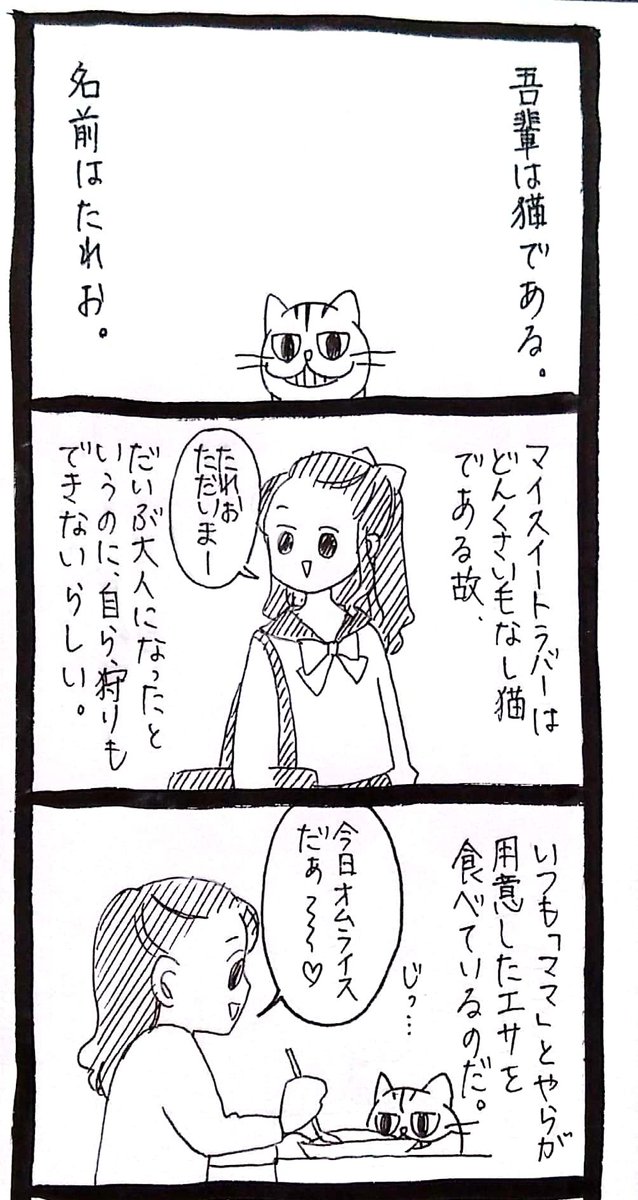 吾輩は猫である。
名前はたれお。
マイスイートラバーは
どんくさい毛なし猫
である故、
たれお
ただいまー
だいぶ大人になったと
いうのに、自ら狩りも
できないらしい。
いつも「ママ」とやらが
用意したエサを
食べているのだ。
じっ…
今日オムライス
だぁ〜〜♡